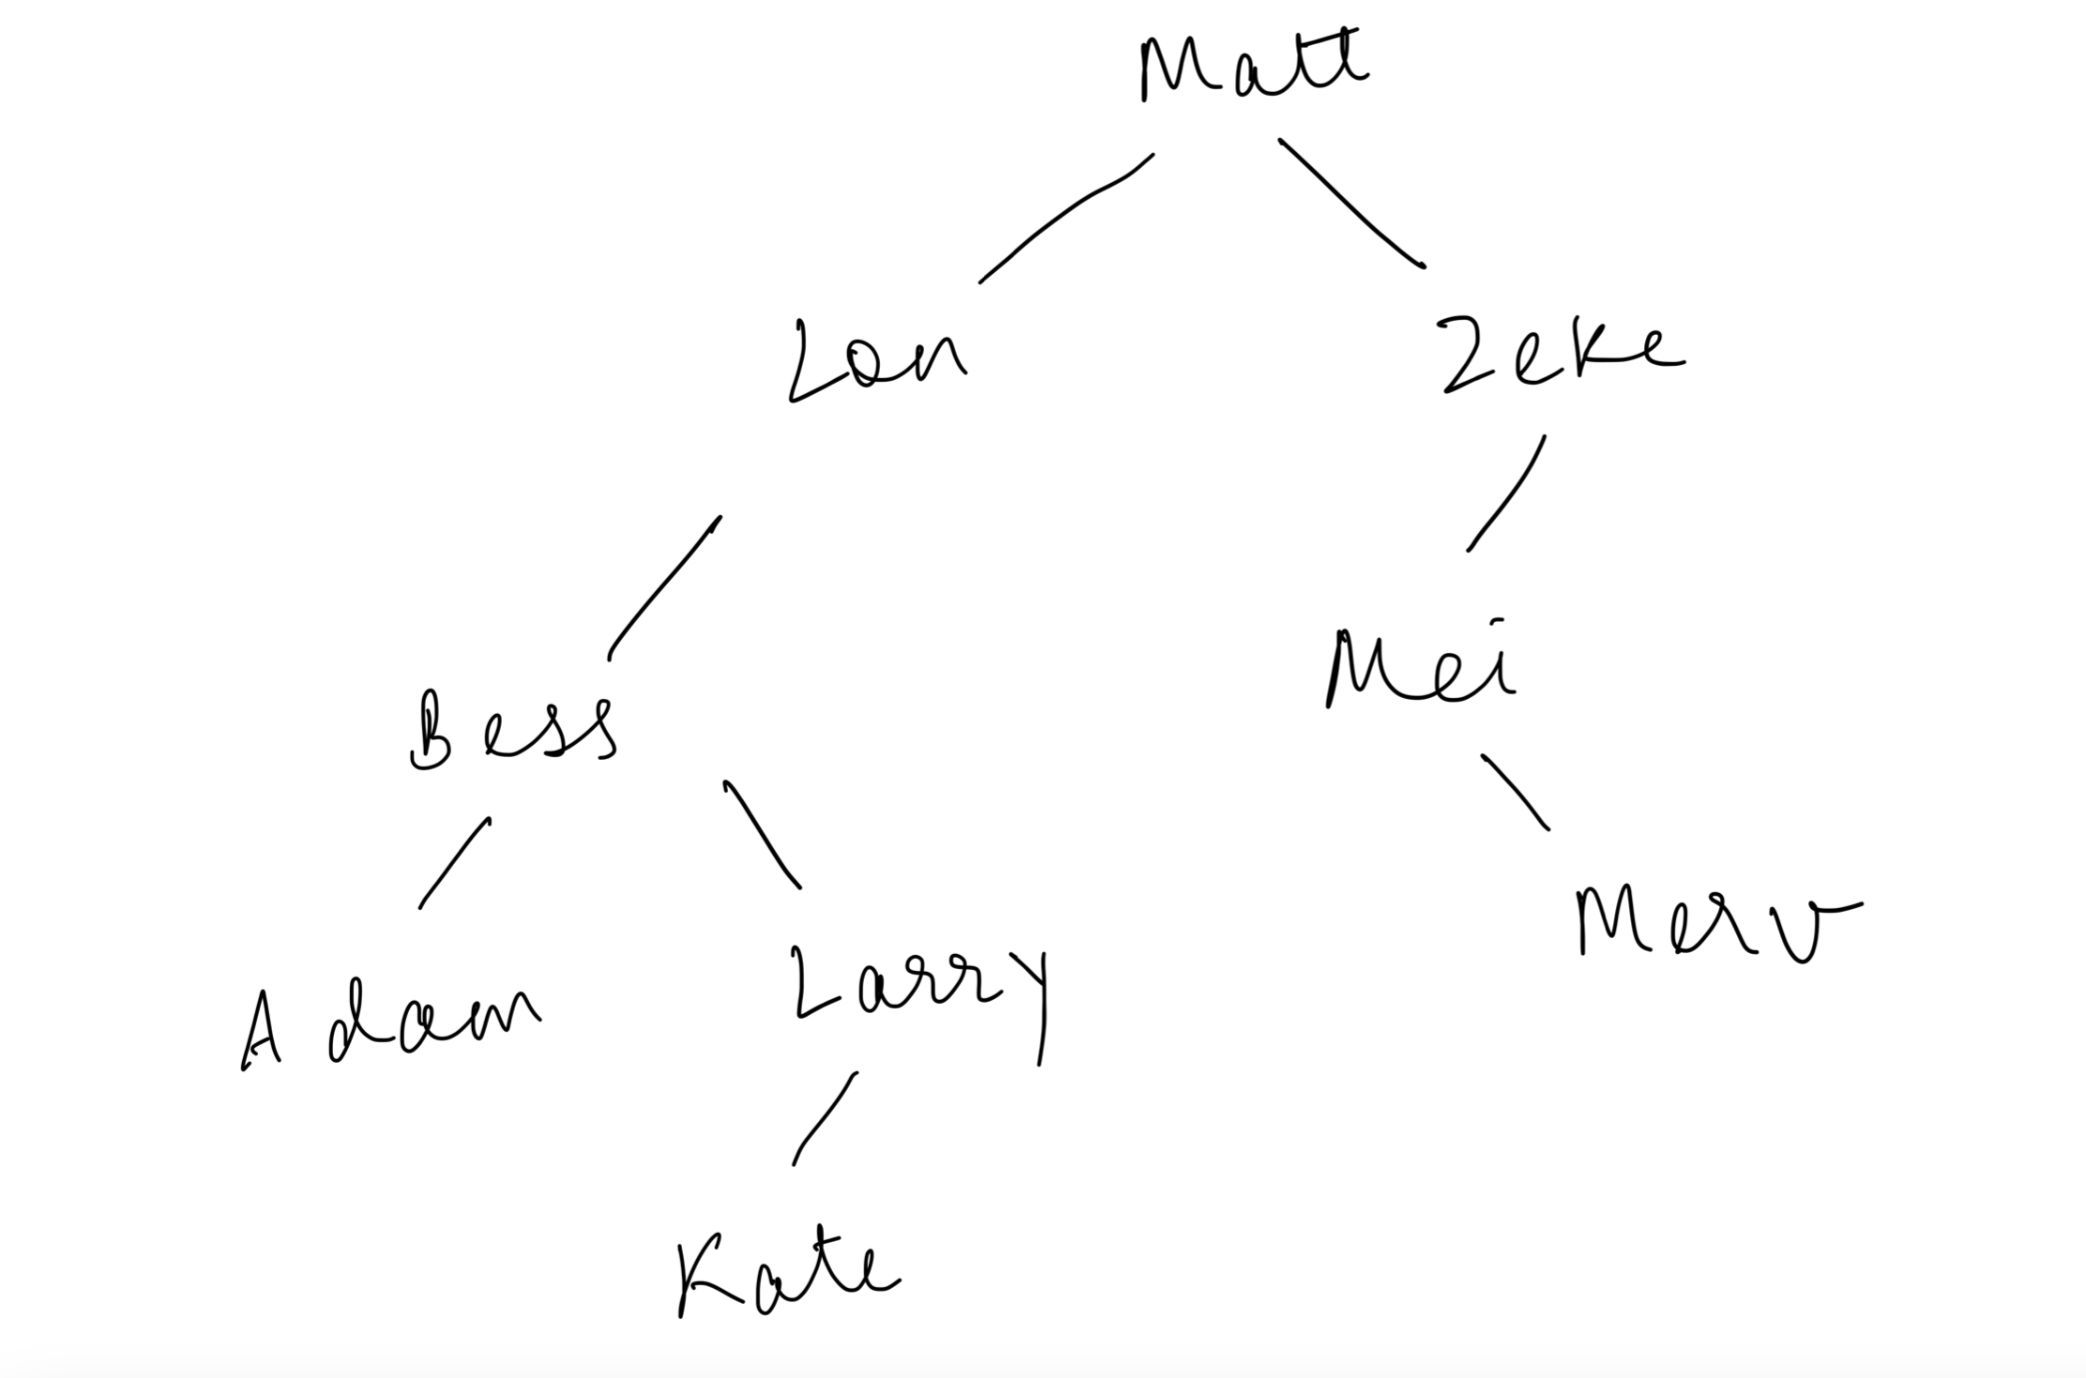 Matt
Lon Zeke
Bess Mei
Adam Larry Merv
Kate